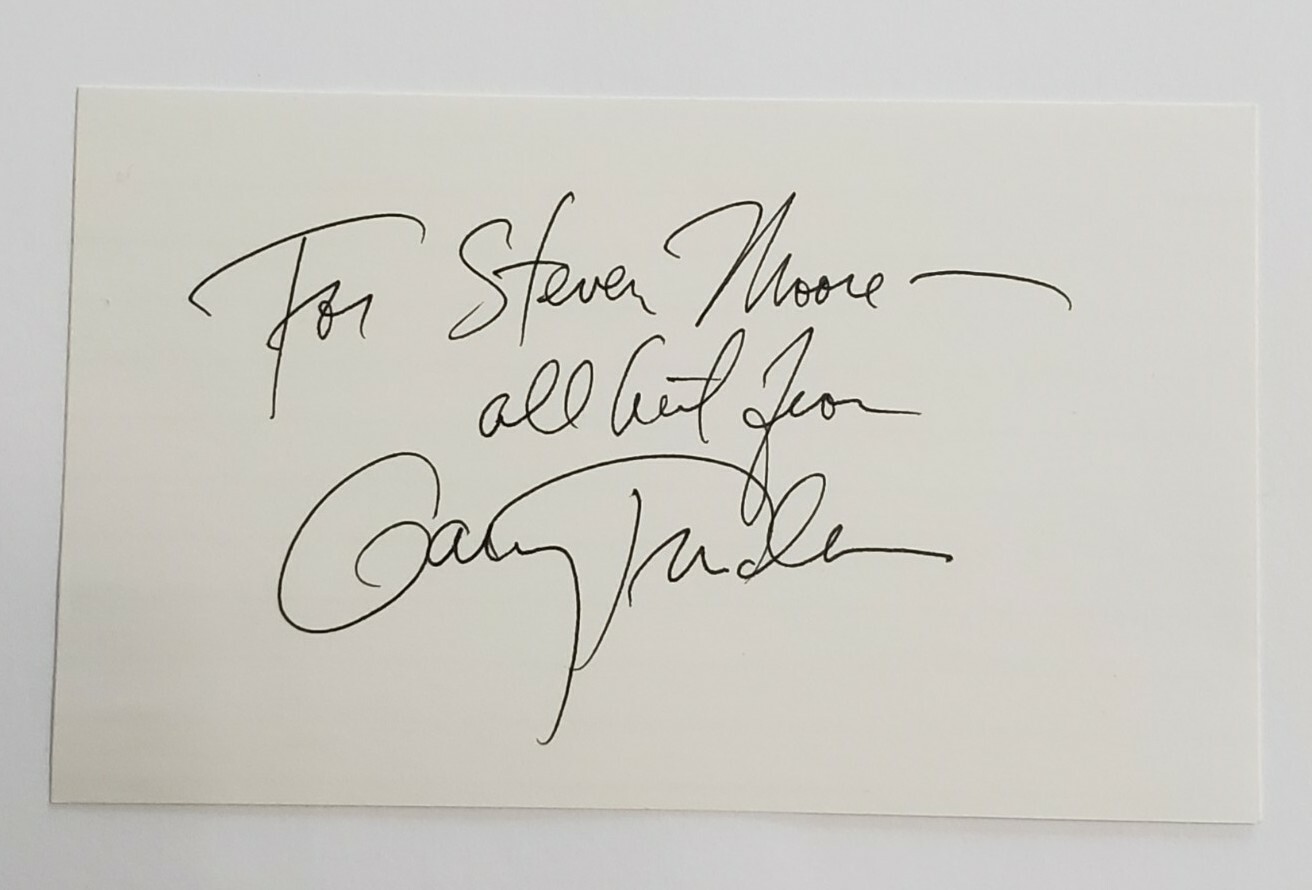 For Steven Moore —
all best from
Garry Trudeau